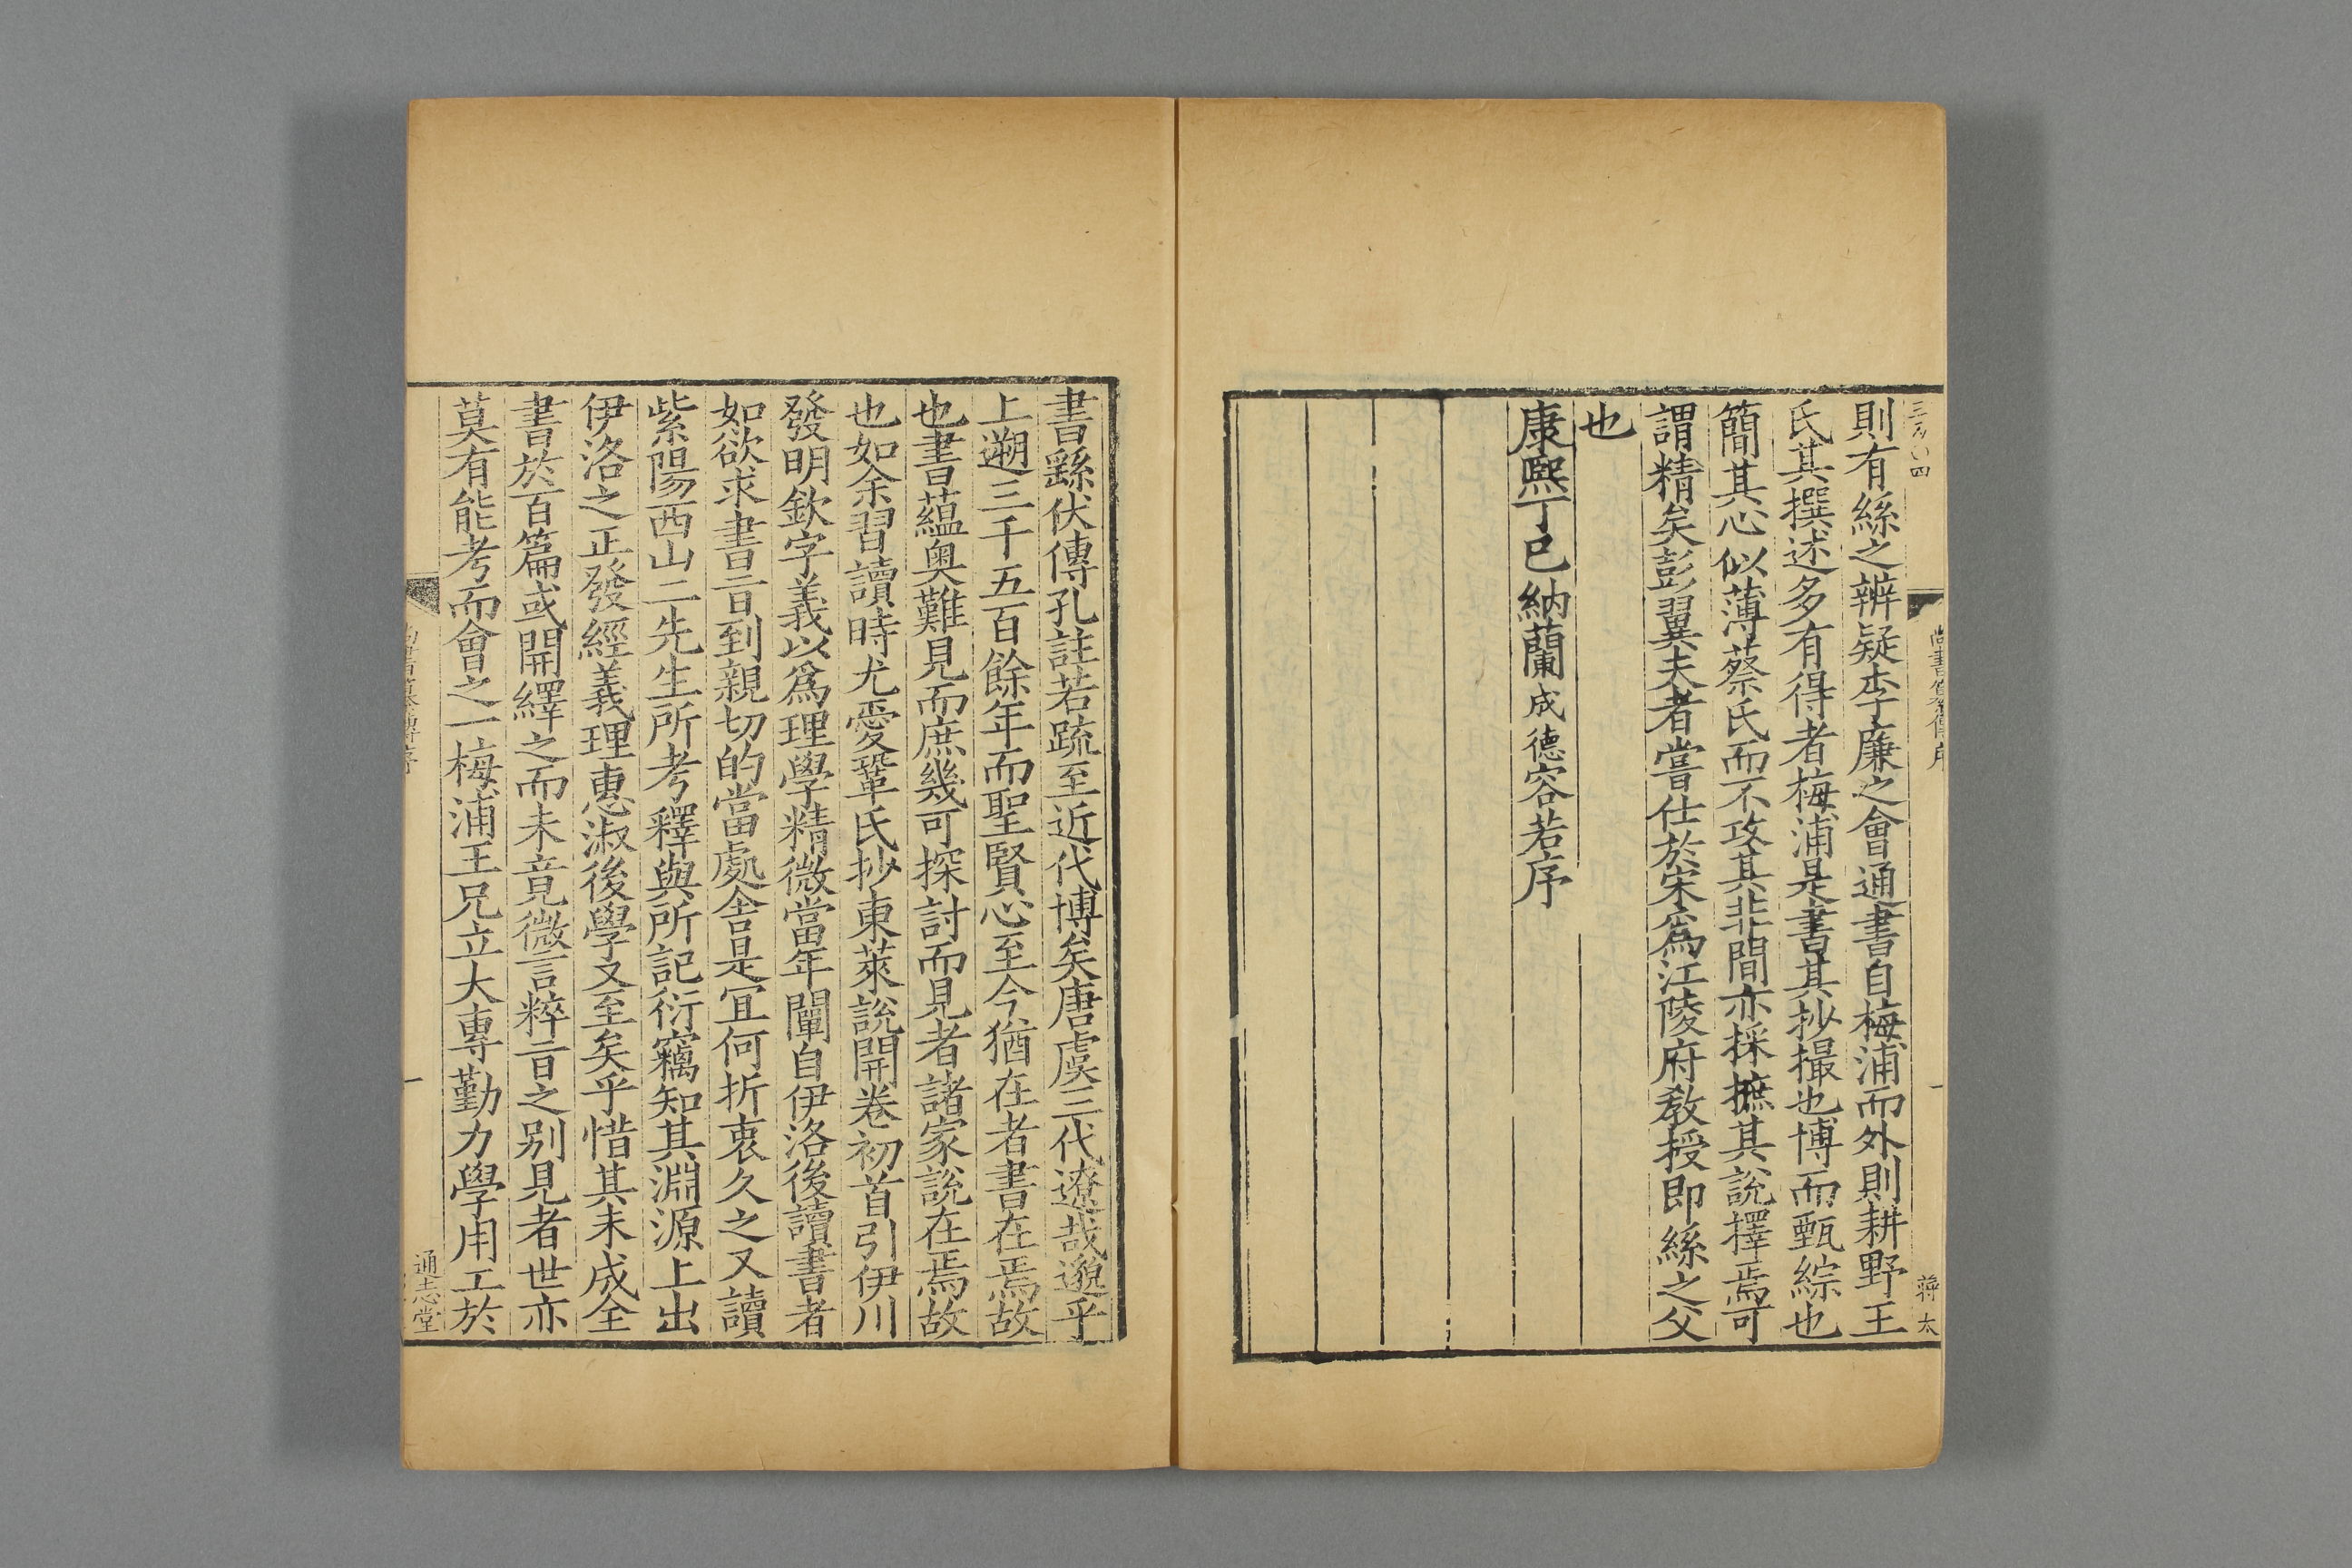 則有絲之辨疑李廉之會通書自梅浦而外則耕野王
氏其撰述多有得者梅浦是書其抄撮也博而甄綜也
簡其心似薄蔡氏而不攻其非間亦採摭其說擇焉可
謂精矣彭翼夫者嘗仕於宋爲江陵府教授即絲之父
也
康熙丁巳納蘭成德容若序
書繇伏傳孔註若疏至近代博矣唐虞三代遼哉邈乎
上遡三千五百餘年而聖賢心至今猶在者書在焉故
也書蘊奥難見而庶幾可探討而見者諸家說在焉故
也如余習讀時尤愛鞏氏抄東萊說開卷初首引伊川
發明欽字義以爲理學精微當年闡自伊洛後讀書者
如欲求書旨到親切的當處舍是冝何折衷久之又讀
紫陽西山二先生所考釋與所記衍竊知其淵源上出
伊洛之正發經義理惠淑後學又至矣乎惜其未成全
書於百篇或開繹之而未竟微言粹旨之别見者世亦
莫有能考而會之一梅浦王兄立大專勤力學用工於
通志堂